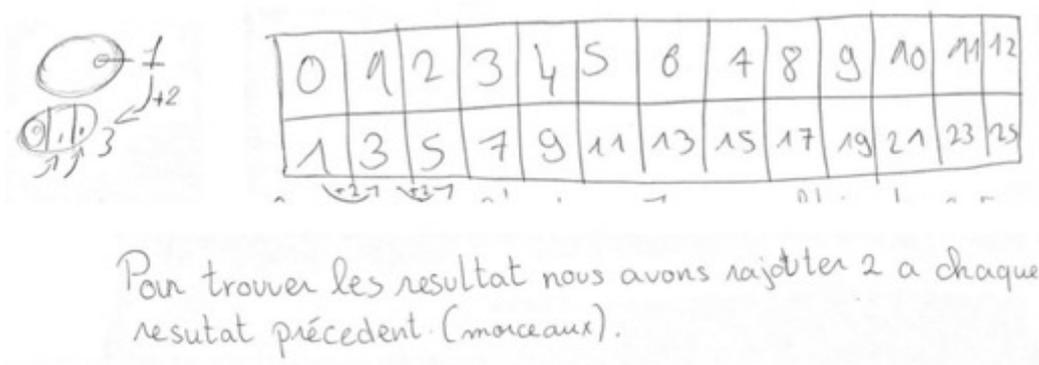 1
+2
3
0 1 2 3 4 5 6 7 8 9 10 11 12
1 3 5 7 9 11 13 15 17 19 21 23 25
+2 +2
Pour trouver les resultat nous avons rajouter 2 a chaque
resutat précedent (morceaux).